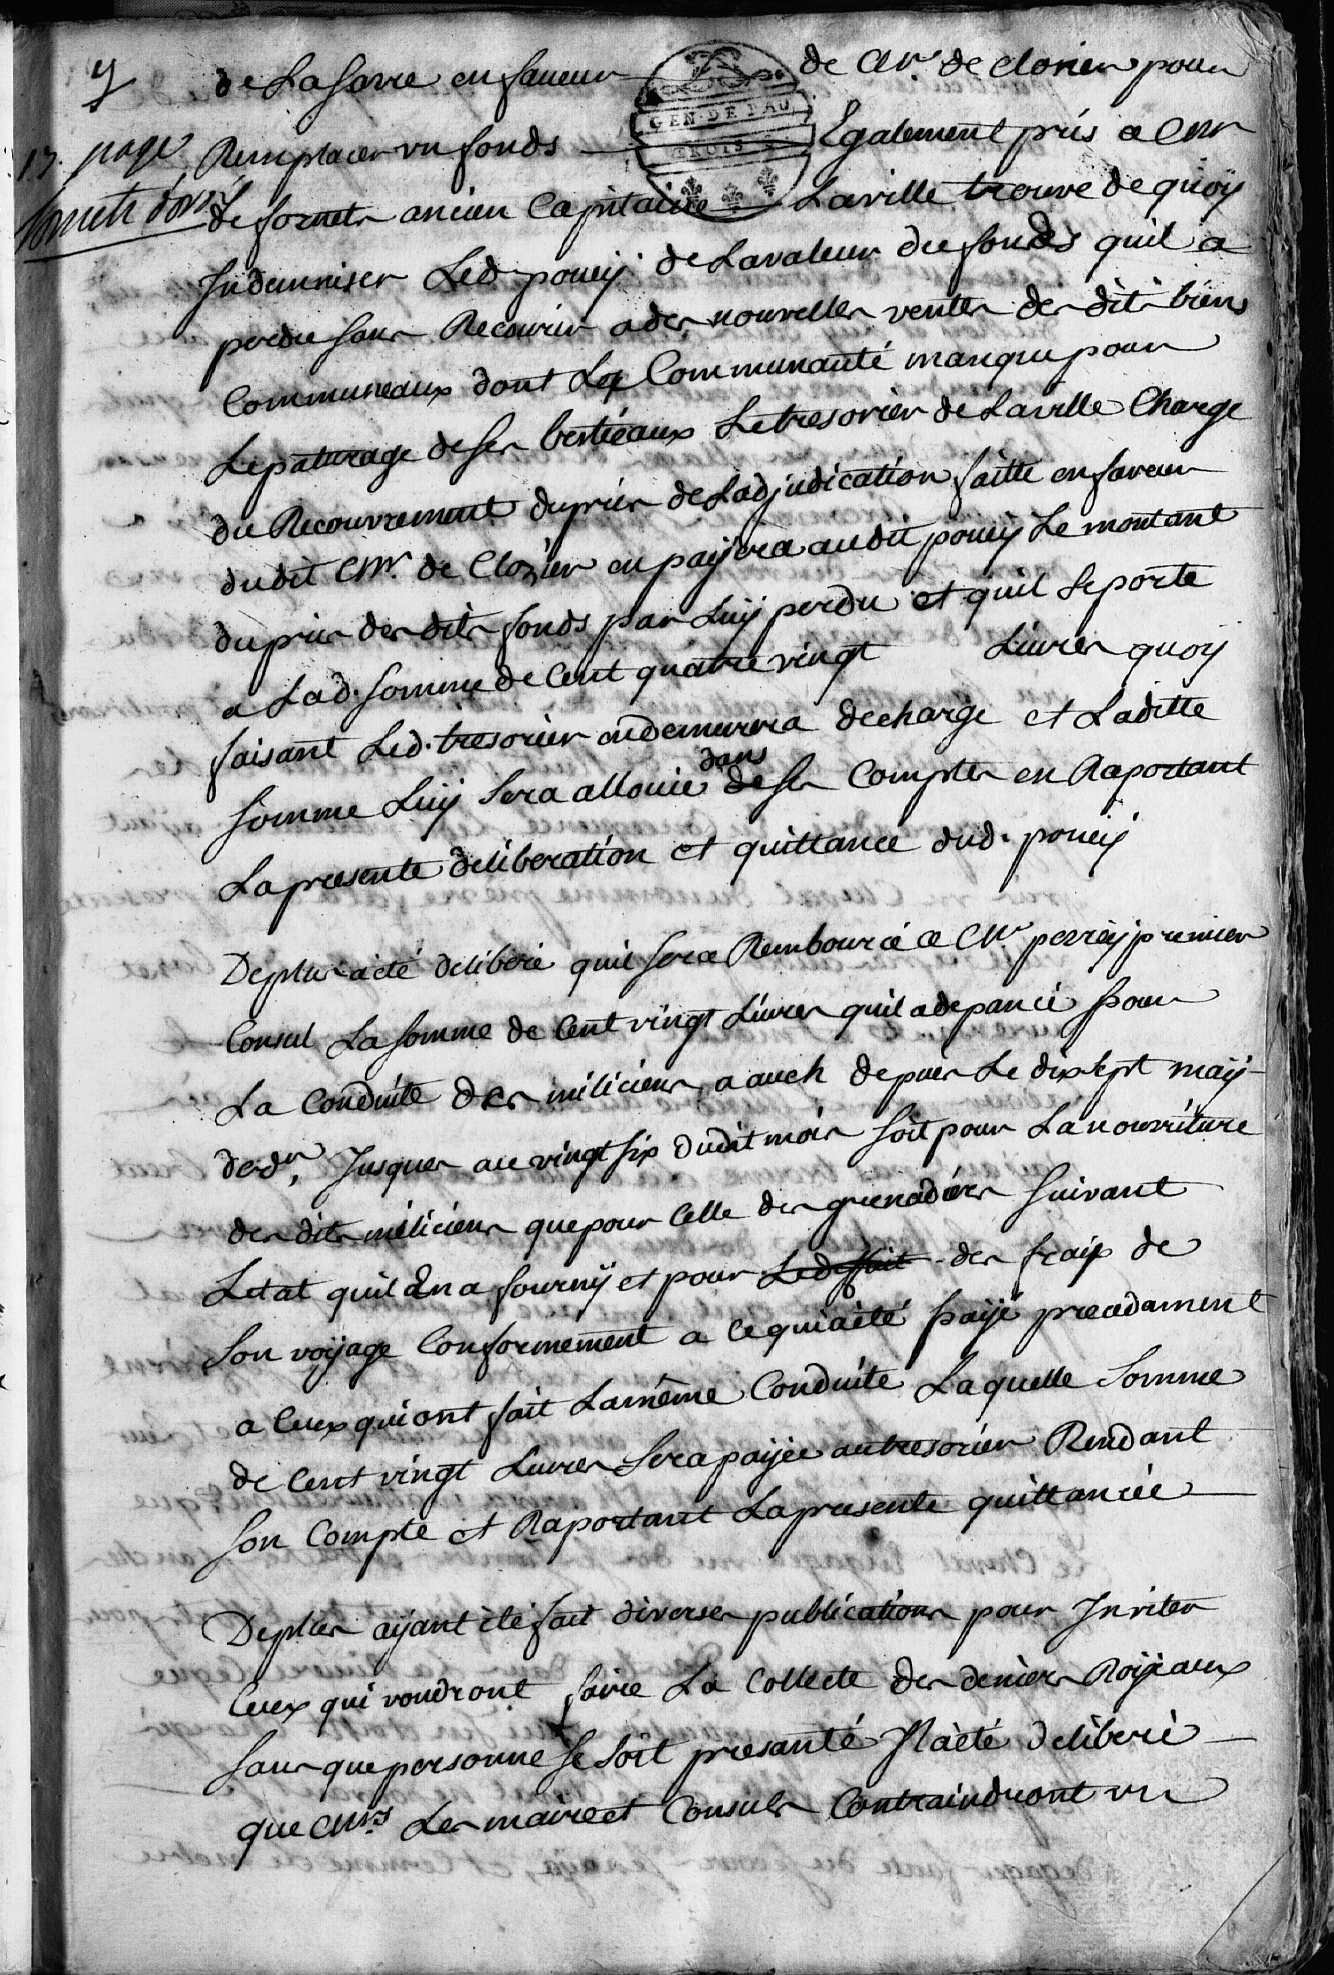 9
de La serre en faveur de Mr de closier pour
17. page Remplacer un fonds Egalement pris a Mr
de fornets ancien Capitaine Laville trouve de quoÿ
Indamniser Led poueÿ de Lavaleur du fonds quil a
perdu sans Recourir a des nouvelles ventes des dits biens
Communeaux dont La Communauté manque pour
Lepaturage de ses bestieaux Le tresorier de Laville Chargé
du Recouvrement du prix de Ladjudication faitte en faveur
dudit Mr. de Closier en paÿera audit poueÿ Le montant
du prix des dits fonds par Luÿ perdu et quil se porte
a Lad. somme de Cent quatre vingt Livres quoÿ
faisant Led. tresorier en demurera decharge et Laditte
dans
somme Luÿ sera allouée de ses Comptes en Raportant
La presente deliberation et quittance dud. poueÿ
Deplus aèté deliberé quil sera Rembourcé a Mr perreÿ premier
Consul La somme de Cent vingt Livres quil a depancé pour
La Conduite des miliciens a auch depuis Le dixsept maÿ
dern, Jusques au vingt six dudit mois soit pour La nourriture
des dits miliciens que pour Celle des grenadiers suivant
Letat quil En a fournÿ et pour des fraix de
son voÿage Conformement a Cequiaèté paÿé precedament
a Ceux qui ont fait Lamême Conduite Laquelle somme
de Cent vingt Livres sera paÿée au tresorier Rendant
son Compte et Raportant La presente quittancée
Deplus aÿant été fait diverses publications pour Inviter
Ceux qui voudront faire La Collecte des deniers Roÿeaux
sans que personne se soit presanté Il aèté deliberé
que Mrs Les maire et Consuls Contraindront un
GEN. DE PAU
TROIS S